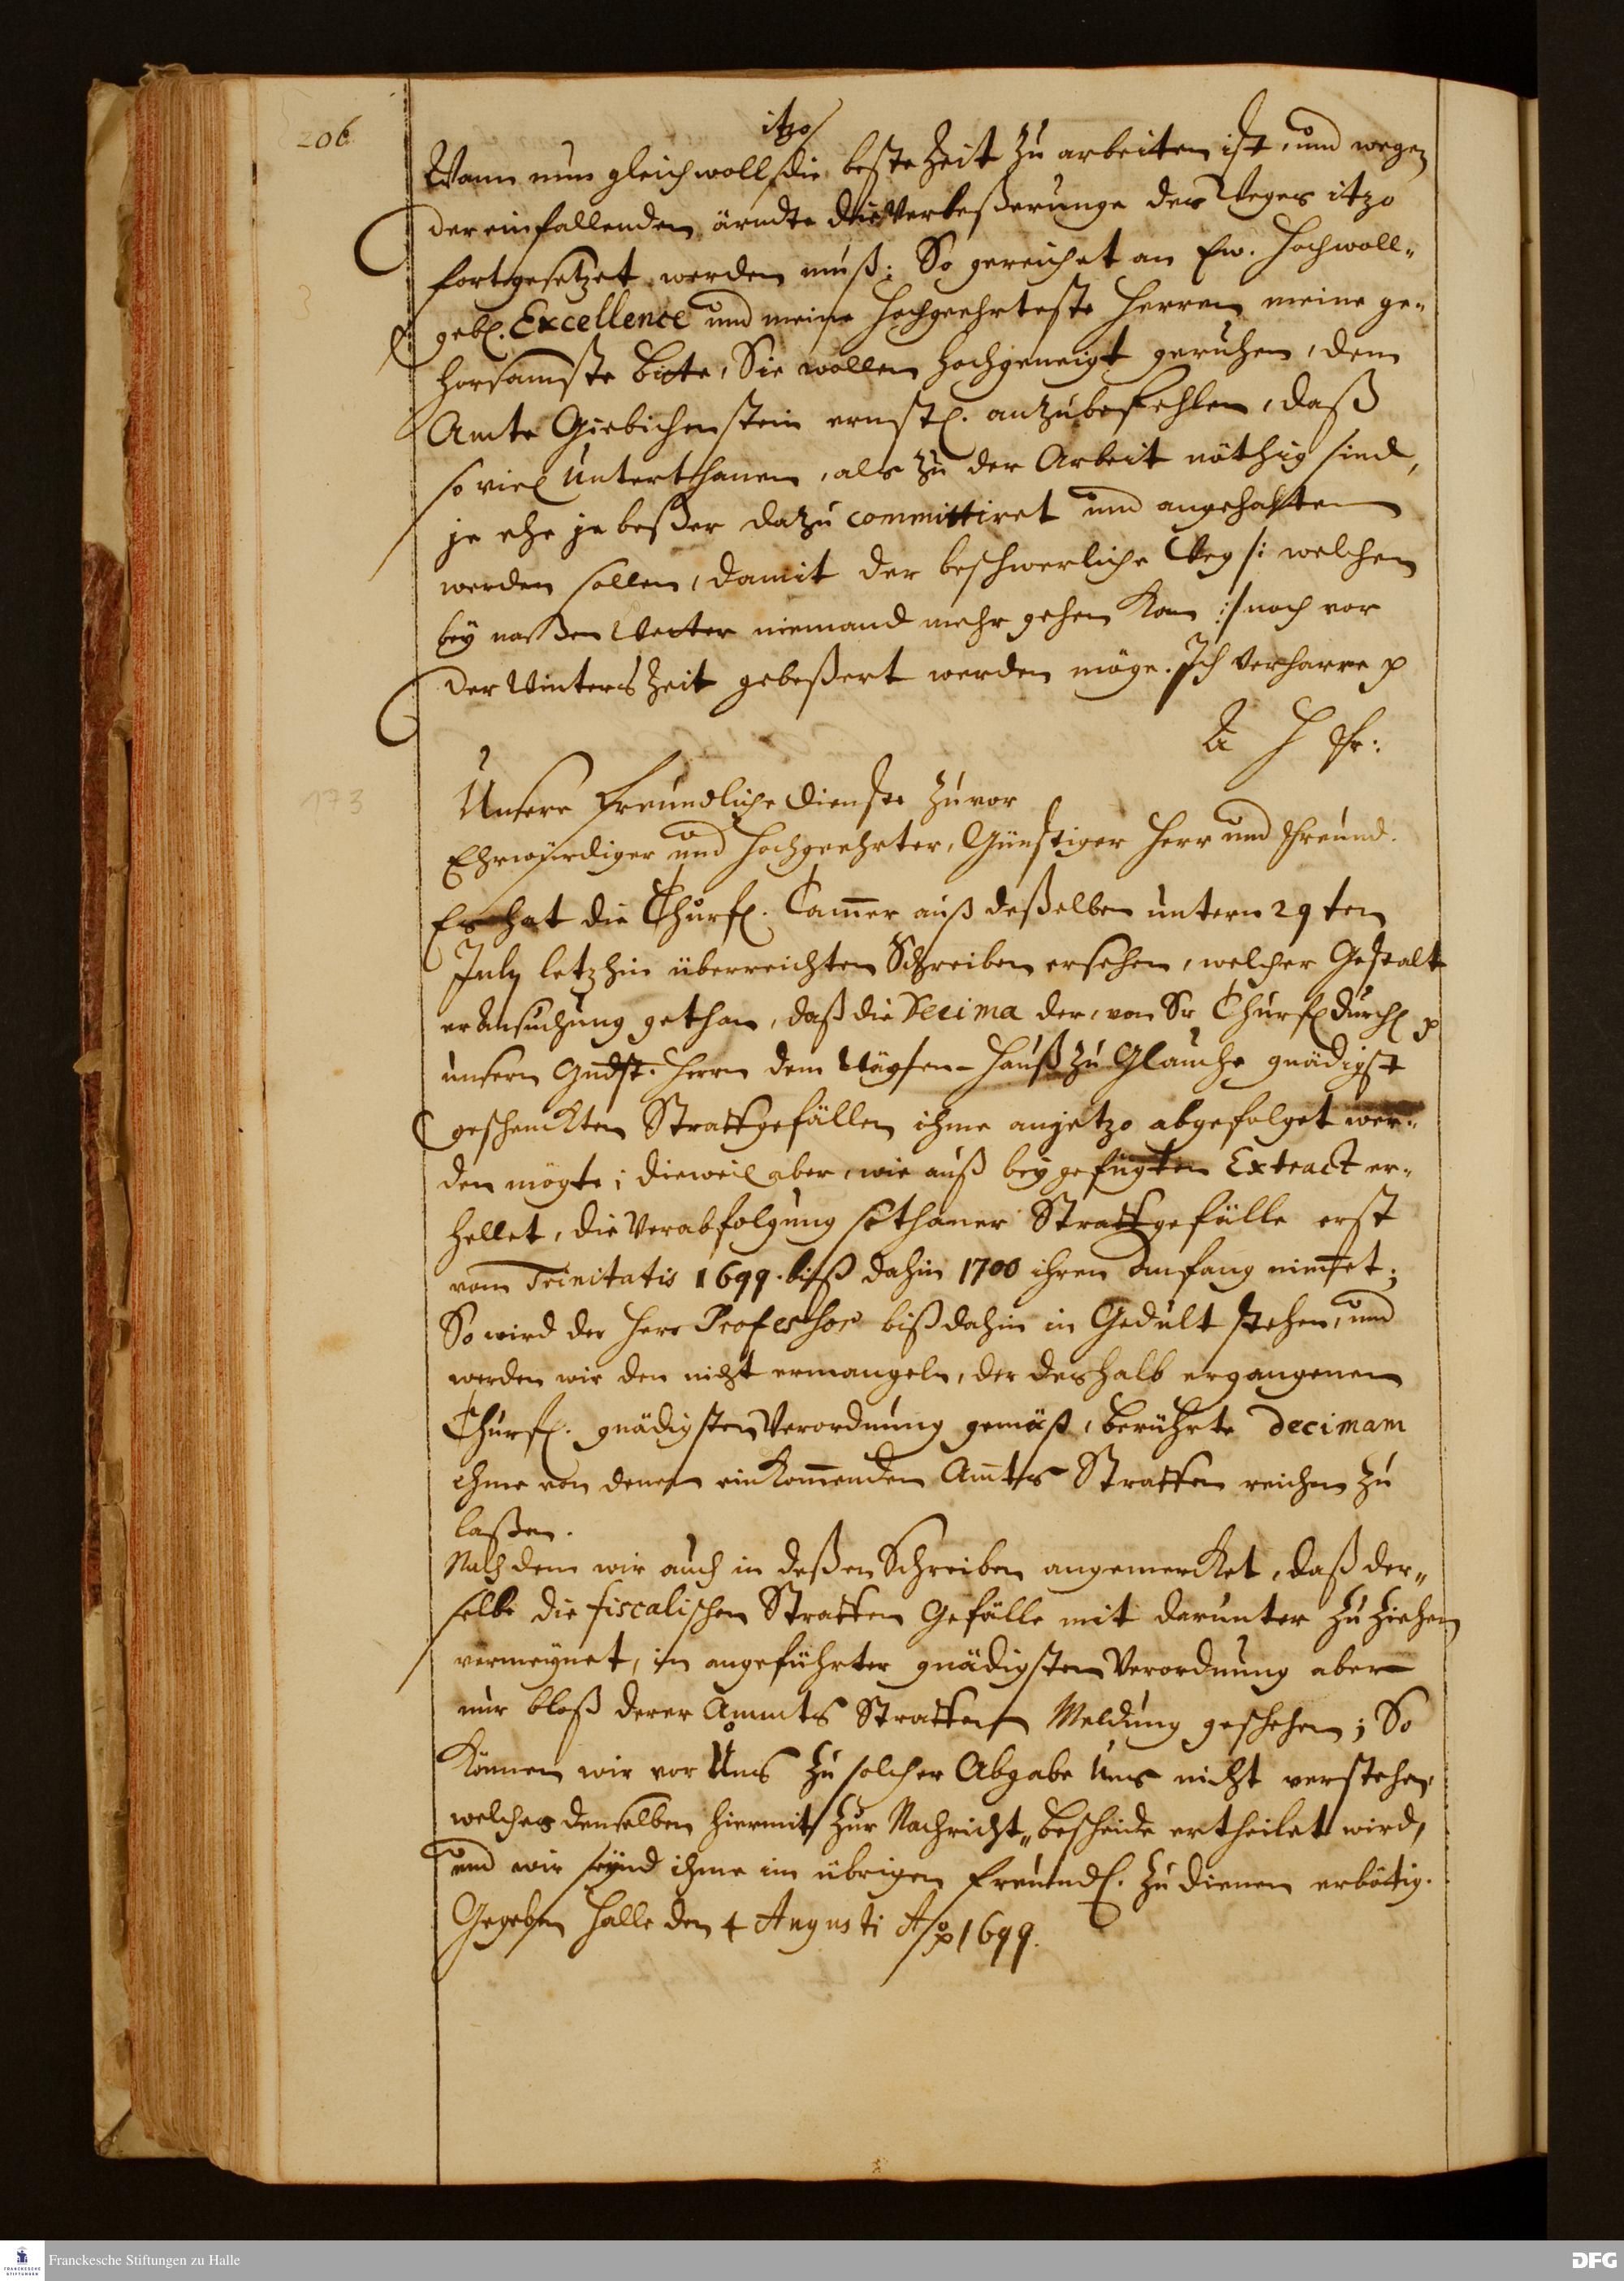 206
itzo
Wann nun gleichwoll die beste Zeit zu arbeiten ist, und wegen
der einfallenden ärndte die Verbeßerunge des Weges itzo
fortgesetzet werden muß: So gereichet an Ew. Hochwoll-
gebl. Excellence und meine Hochgeehrteste Herren meine ge-
horsamste bitte, Sie wollen hochgeneigt geruhen, dem
Amte Giebichenstein ernstl. anzubefehlen, daß
so viel Unterthanen, als zu der Arbeit nöthig sind,
je ehe je beßer dazu committiret und angehalten
werden sollen, damit der beschwerliche Weg /: welchen
bey naßen Wetter niemand mehr gehen kan :/ noch vor
der Winters Zeit gebeßert werden möge. Ich verharre p
A H Fr:
173
Unsere Freundliche dienste zuvor
Ehrwürdiger und Hochgeehrter, Günstiger Herr und Freund.
Es hat die Churfl. Cam̄er auß deßelben untern 29ten
July letzhin überreichten Schreiben ersehen, welcher Gestalt
er Ansuchung gethan, daß die Decima der, von Sr Churfl durchl p
unsern Gndst. Herrn dem Wäysen-Hauß zu Glaucha gnädigst
geschenckten Straffgefällen ihme anjetzo abgefolget wer-
den mögte; dieweil aber, wie auß beygefügten Extract er-
hellet, die Verabfolgung sothaner Straffgefälle erst
vom Trinitatis 1699. biß dahin 1700 ihren Anfang nim̄et;
So wird der Herr Professor biß dahin in Gedult stehen, und
werden wir den nicht ermangeln, der deshalb ergangenen
Churfl. gnädigsten Verordnung gemäß, berührte decimam
ihme von denen einkom̄enden Amts Straffen reichen zu
laßen.
Nach dem wir auch in deßen Schreiben angemercket, daß der-
selbe die fiscalischen Straffen Gefälle mit darunter zu ziehen
vermeynet, in angeführter gnädigsten Verordnung aber
nur bloß derer Ammts Straffen Meldung geschehen; So
können wir vor Uns zu solcher Abgabe Uns nicht verstehen,
welches denselben hiermit zur Nachricht„ bescheide ertheilet wird,
und wir seynd ihme im übrigen freundl. zu dienen erbötig.
Gegeben Halle den 4 Augusti Ao 1699.
Franckesche Stiftungen zu Halle
FRANCKESCHE
STIFTUNGEN
DFG